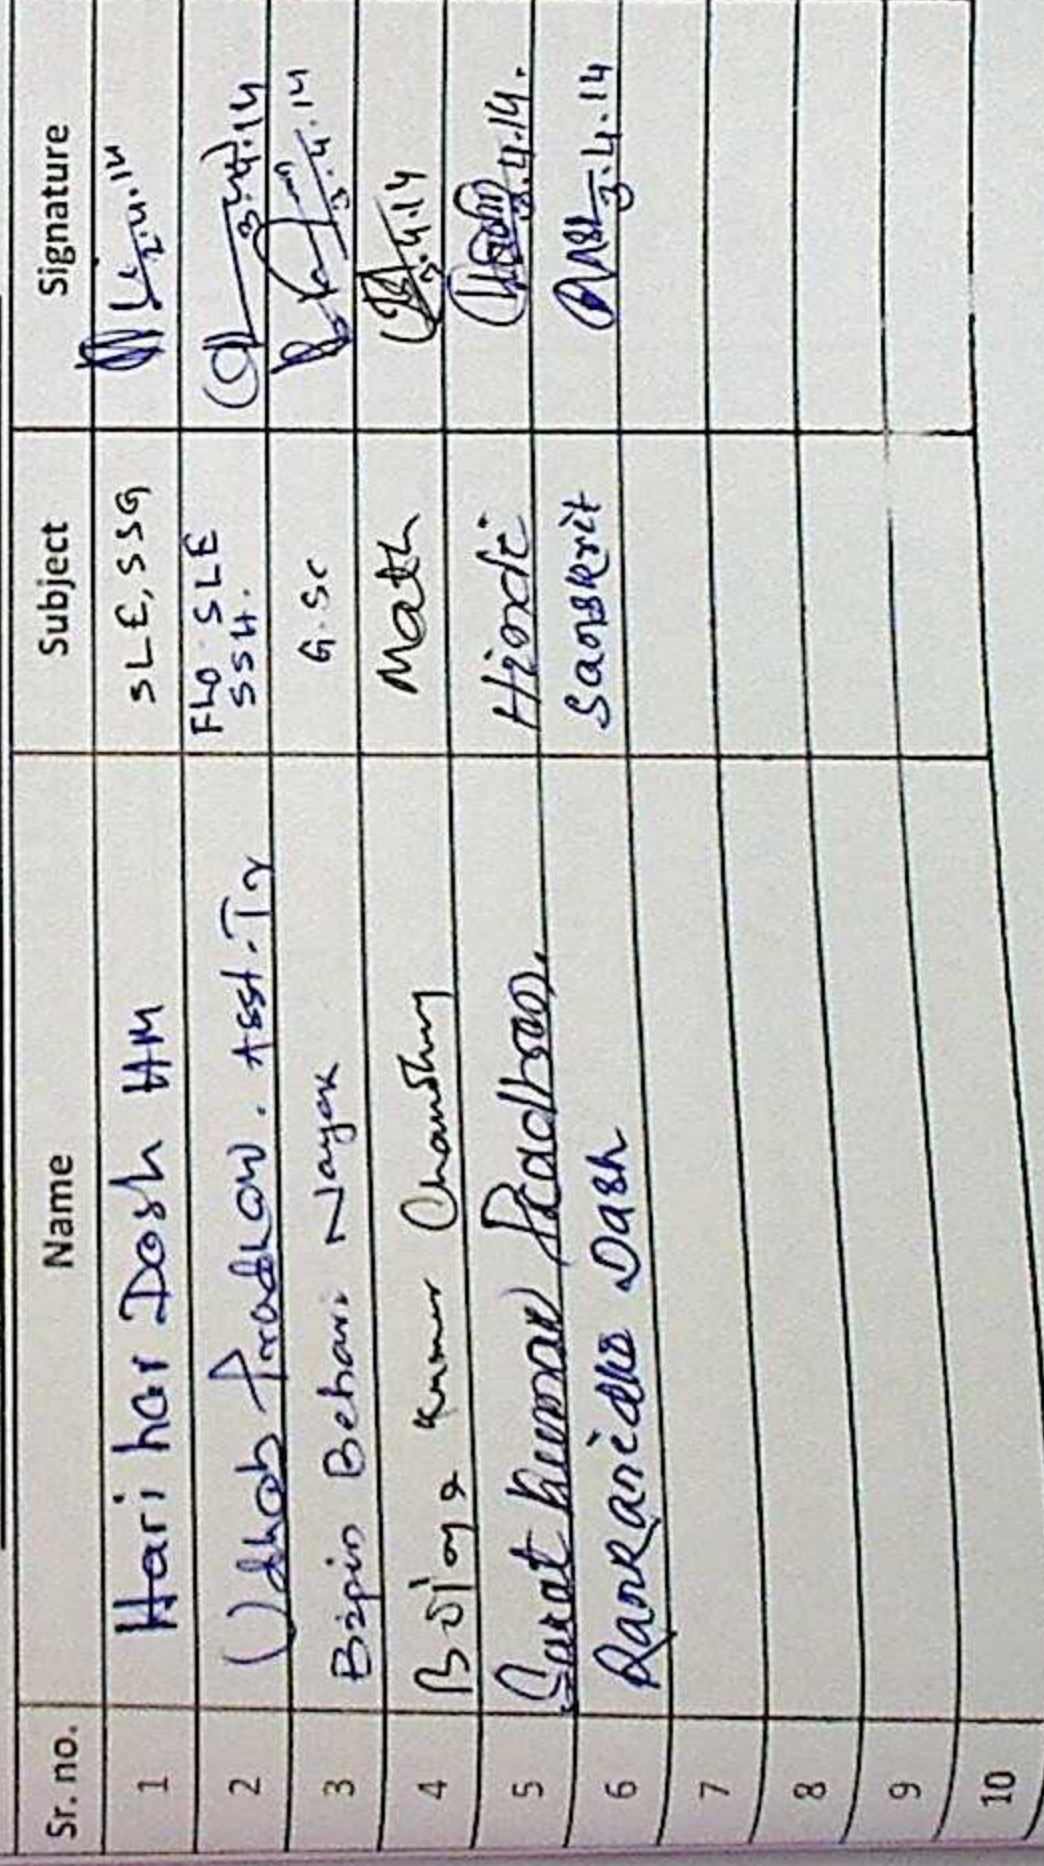 Sr. no. Name Subject Signature
1 Harihar Dash HM SLE, SSG 2.4.14
2 Udhab Pradhan. Asst. Tr FLO SLE SSH. 3.4.14
3 Bipin Behari Nayak G.Sc 3.4.14
4 Bijay Kumar Choudhury Math 3.4.14
5 Sarat Kumar Pradhan. Hindi 3.4.14.
6 Dash Sanskrit 3.4.14
7
8
9
10